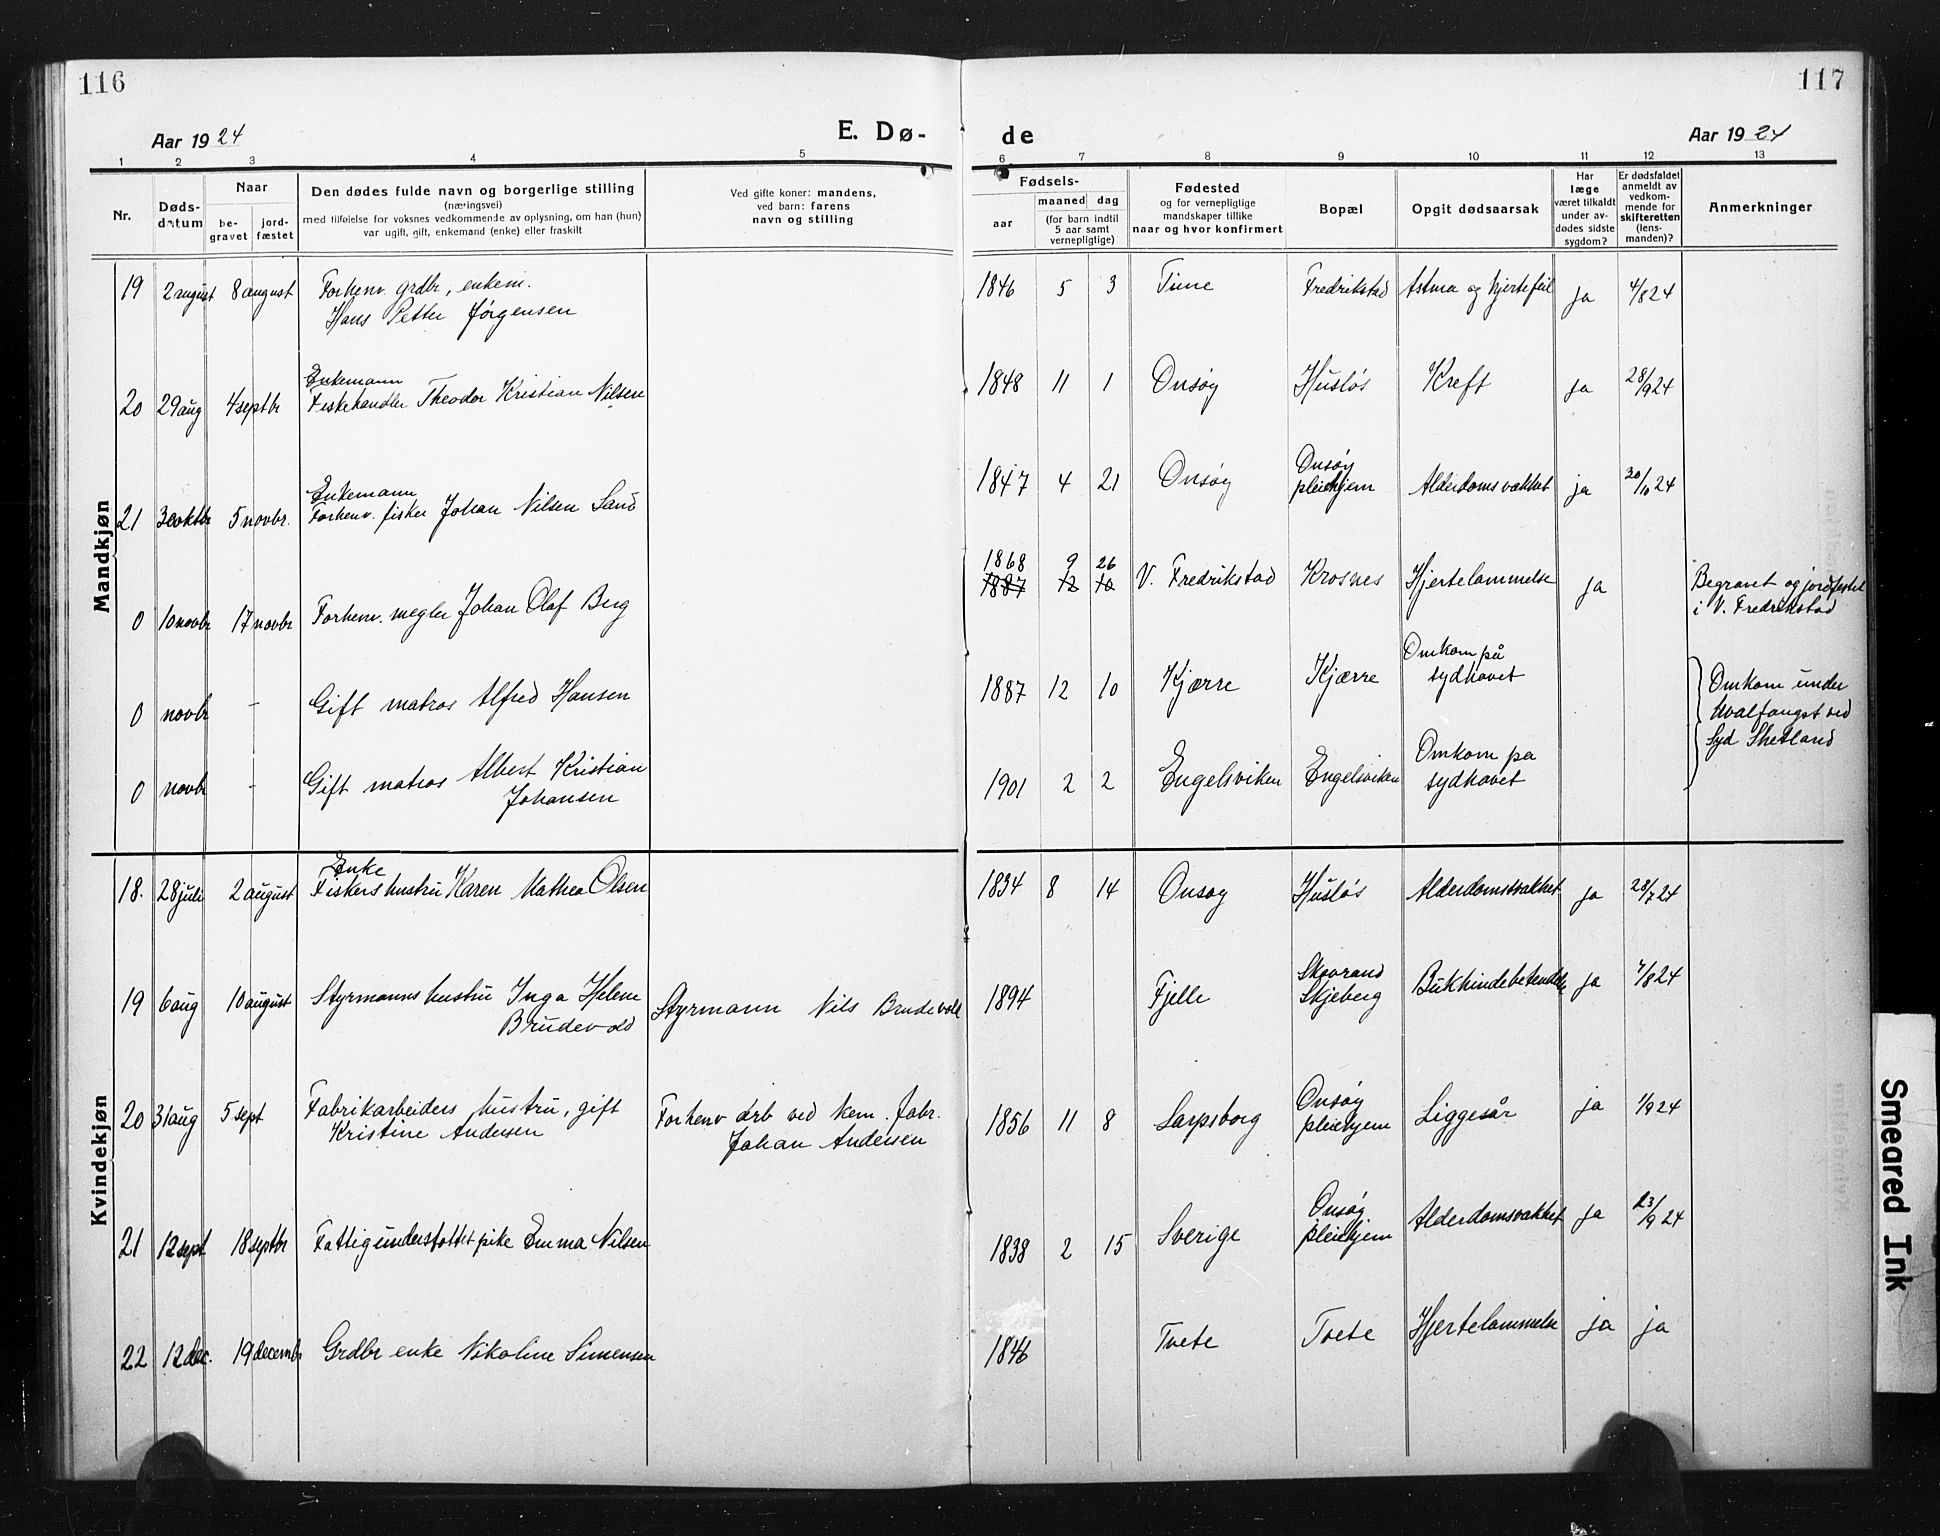 116
117
Aar 1924
E. Dø-
de
Aar 1924
1 2 3 4 5 6 7 8 9 10 11 12 13
Nr.
Døds-
datum
Naar
be-
gravet
jord-
fæstet
Den dødes fulde navn og borgerlige stilling
(næringsvei)
med tilføielse for voksnes vedkommende av oplysning, om han (hun)
var ugift, gift, enkemand (enke) eller fraskilt
Ved gifte koner: mandens,
ved barn: farens
navn og stilling
Fødsels-
aar
maaned dag
(for barn indtil
5 aar samt
vernepligtige)
Fødested
og for vernepligtige
mandskaper tillike
naar og hvor konfirmert
Bopæl
Opgit dødsaarsak
Har
læge
været tilkaldt
under av-
dødes sidste
sygdom?
Er dødsfaldet
anmeldt av
vedkom-
mende for
skifteretten
(lens-
manden)?
Anmerkninger
Mandkjøn
19 2 august 8 august Forhenv. grdbr, enkem.
Hans Petter Jørgensen
1846 5 3 Tune Fredrikstad Astma og hjertefeil ja 4/8 24
20 29 aug 4 septbr Enkemann
Fiskehandler Theodor Kristian Nilsen
1848 11 1 Onsøy Husløs Kreft ja 28/9 24
21 30 oktbr 5 novbr. Enkemann
Forhenv. fisker Johan Nilsen Sand
1847 4 21 Onsøy Onsøy
pleiehjem Alderdomsvakhet ja 30/10 24
0 10 novbr 17 novbr Forhenv. megler Johan Olaf Berg
1868 9 26
1887 12 10
V. Fredrikstad Krosnes Hjertelammelse ja Begravet og jordfestet
i V. Fredrikstad
0 novbr - Gift matros Alfred Hansen
1887 12 10 Kjærre Kjærre Omkom på
sydhavet
Omkom under
hvalfangst ved
Syd Shetland
0 novbr - Gift matros Albert Kristian
Johansen
1901 2 2 Engelsviken Engelsviken Omkom pa
sydhavet
Kvindekjøn
18. 28 juli 2 august Enke
Fiskers hustru Karen Mathea Olsen
1834 8 14 Onsøy Husløs Alderdomsvakhet ja 28/7 24
19 6 aug 10 august Styrmanns hustru Inga Helene
Brudevold
Styrmann Nils Brudevold
1894 Fjelle Skovrand
Skjeberg Bukhindebetendelse ja 7/8 24
20 31 aug 5 sept Fabrikarbeiders hustru, gift
Kristine Andersen
Forhenv arb ved kem. fabr.
Johan Andersen
1856 11 8 Sarpsborg Onsøy
pleiehjem Liggesår ja 1/9 24
21 12 sept 18 septbr Fattigunderstøttet pike Emma Nilsen
1838 2 15 Sverige Onsøy
pleiehjem Alderdomsvakhet ja 23/9 24
22 12 dec. 19 decembr Grdbr enke Nikoline Simensen
1846 Tvete Tvete Hjertelammelse ja ja
Smeared Ink